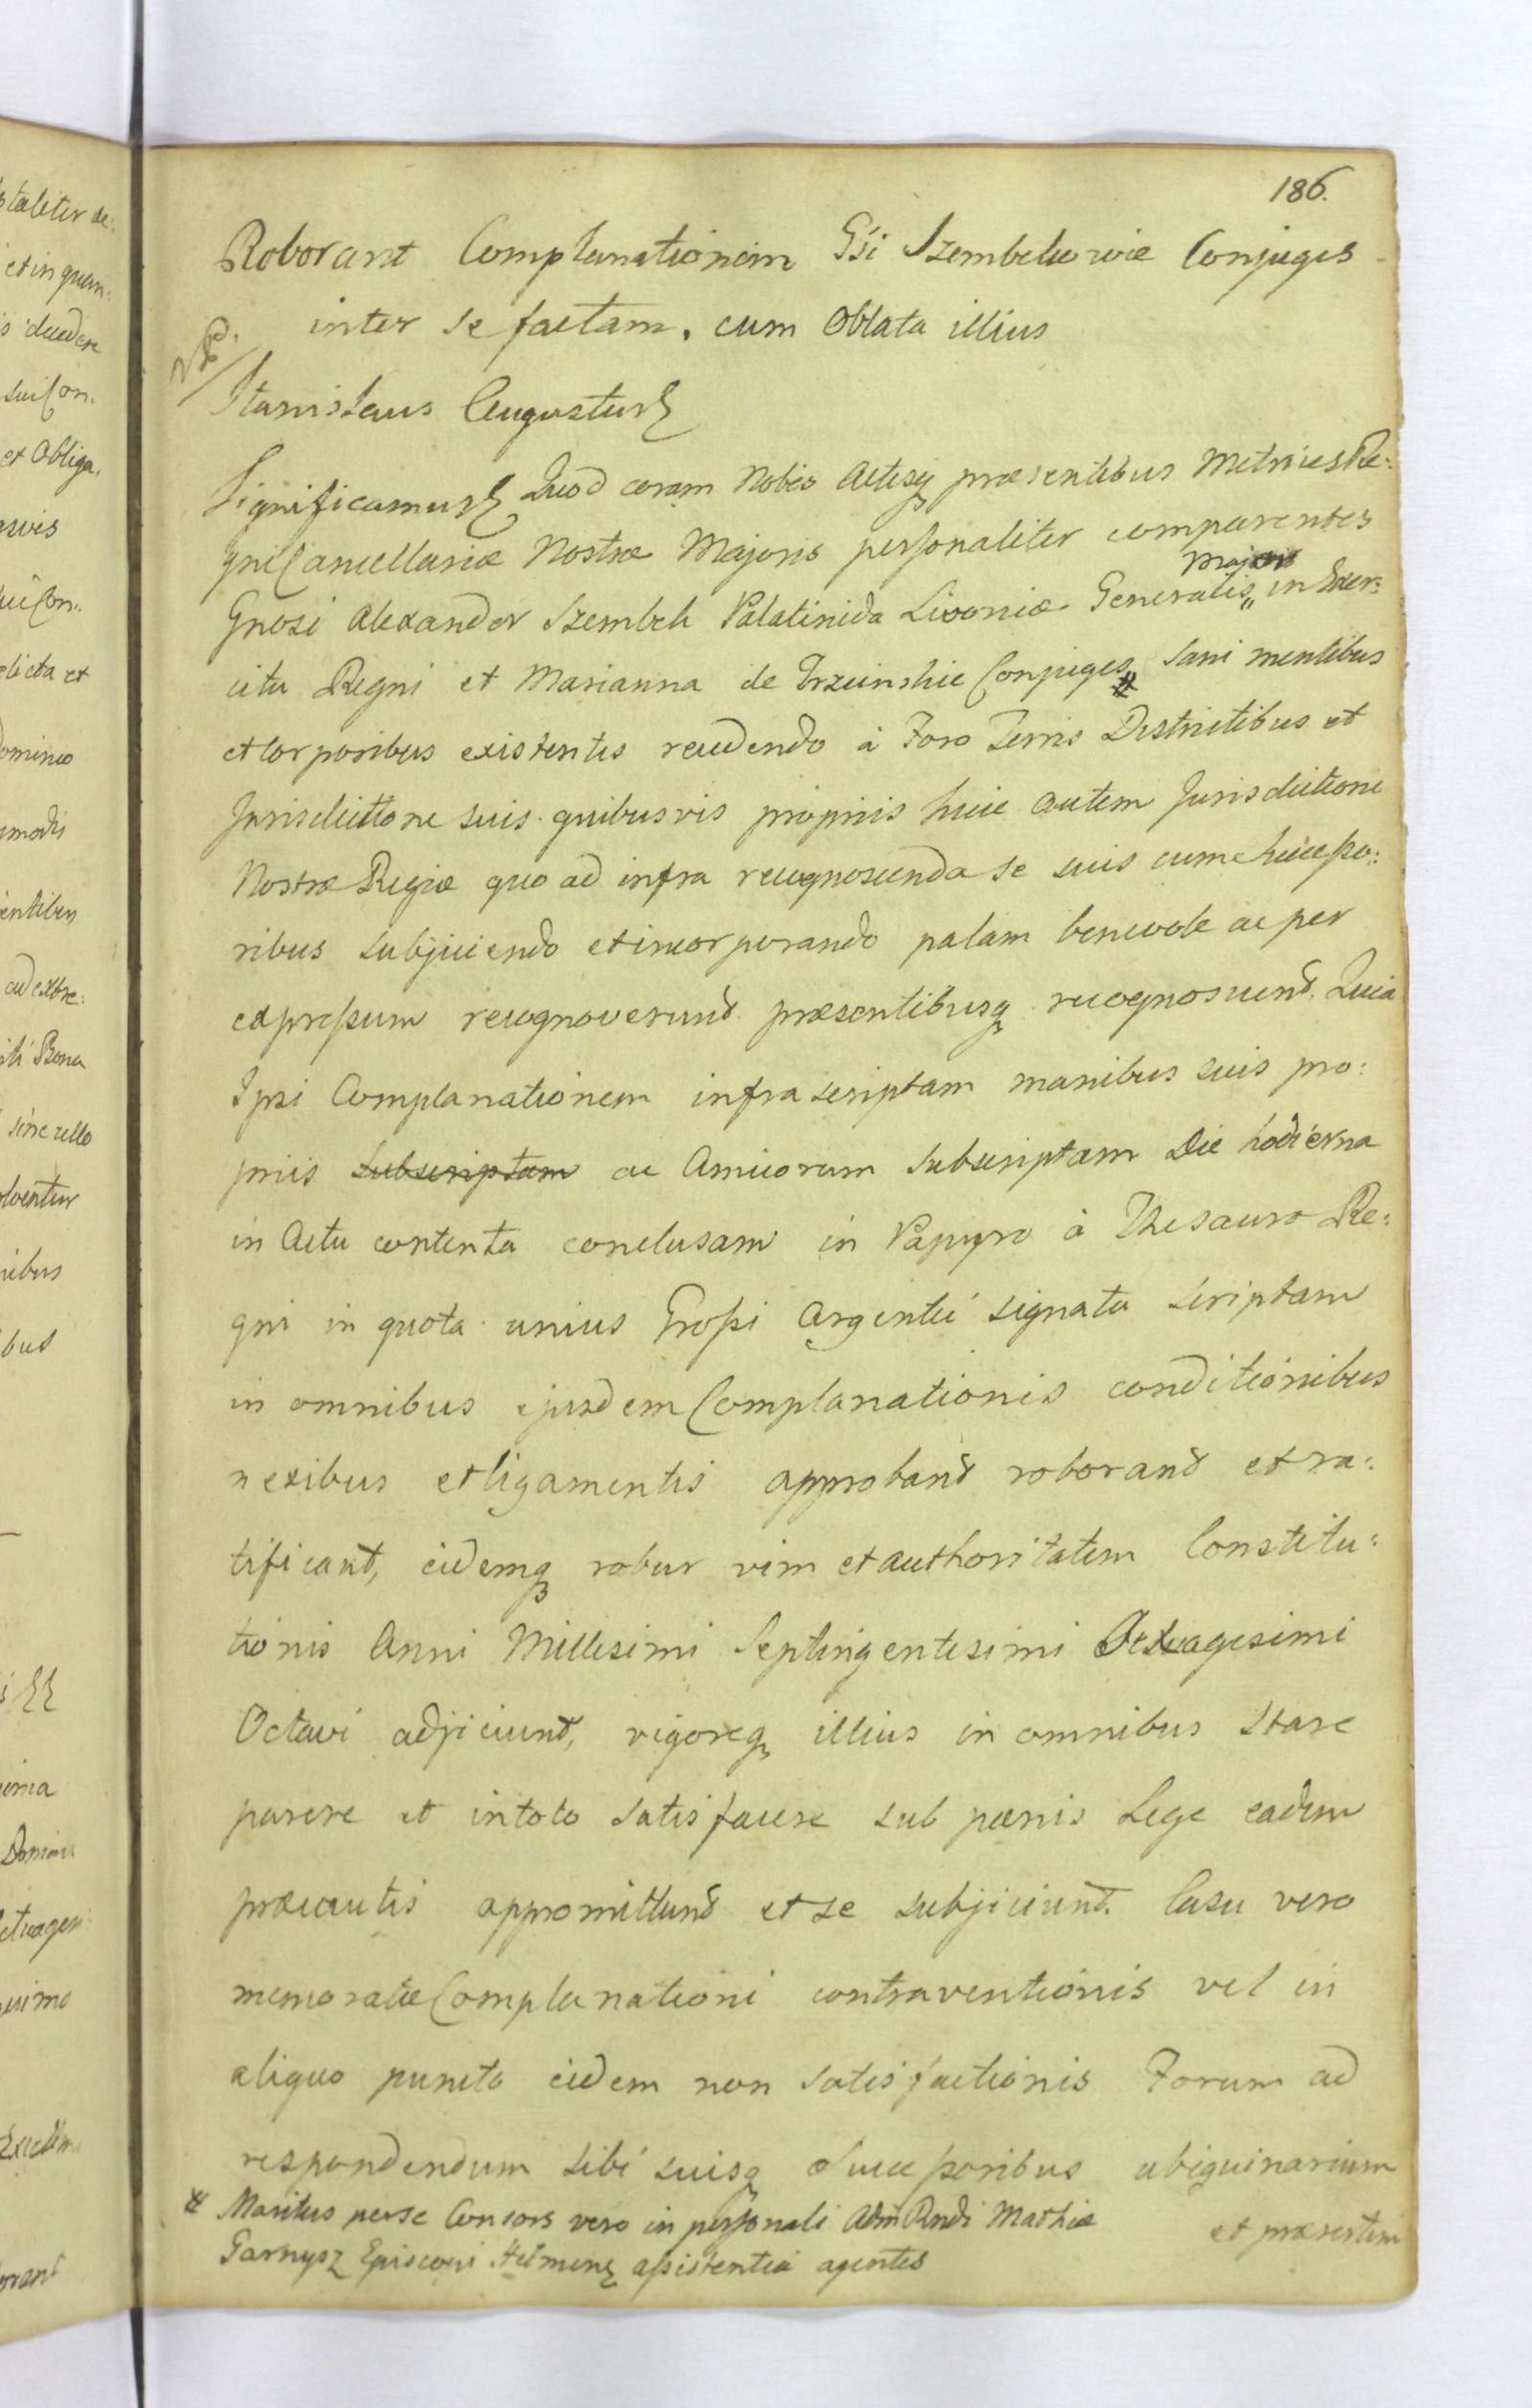 186.
Roborant Complanationem Gsi Szembekowie Conjuges
inter se factam, cum Oblata illius
Stanislaus Augustus
Significamus Quod coram Nobis Actisq praesentibus Metrices Re:
gni Cancellariæ Nostræ Majoris personaliter comparentes
Major
Gnosi Alexander Szembek Palatinida Livoniæ Generalis,, in Exer:
citu Regni et Marianna de Trzcinskie Conjuges # Sani mentibus
et Corporibus existentes recedendo à Foro Terris Districtibus et
Jurisdictione suis quibusvis propriis huic autem Jurisdictioni
Nostræ Regiæ quo ad infra recognoscenda se suis cum succeßo:
ribus subjiciendo et incorporando palam benevole ac per
expressum recognoverund præsentibusq recognoscund. Quia
Ipsi Complanationem infrascriptam manibus suis pro:
priis subscriptam ac Amicorum subscriptam Die hodierna
in Actu contenta conclusam in Papyro à Thesauro Re:
gni in quota unius Großi argentei signata scriptam
in omnibus ejusdem Complanationis conditionibus
nexibus et ligamentis approband roborand et ra:
tificant, eidemq robur vim et authoritatem Constitu:
tionis Anni Millesimi Septingentesimi Sexagesimi
Octavi adjiciunt, vigoreq illius in omnibus stare
parere et in toto satisfacere sub pænis Lege eadem
præcautis appromittund et se subjiciunt. Casu vero
memoratæ Complanationi contraventionis vel in
aliquo puncto eidem non satisfactionis Forum ad
respondendum sibi suisq Succeßoribus ubiquinarium
# Maritus per se Consors vero in personali Adm Rndi Mathiæ
Garnysz Episcopi Helmens aßistentia agentes
et præsertim